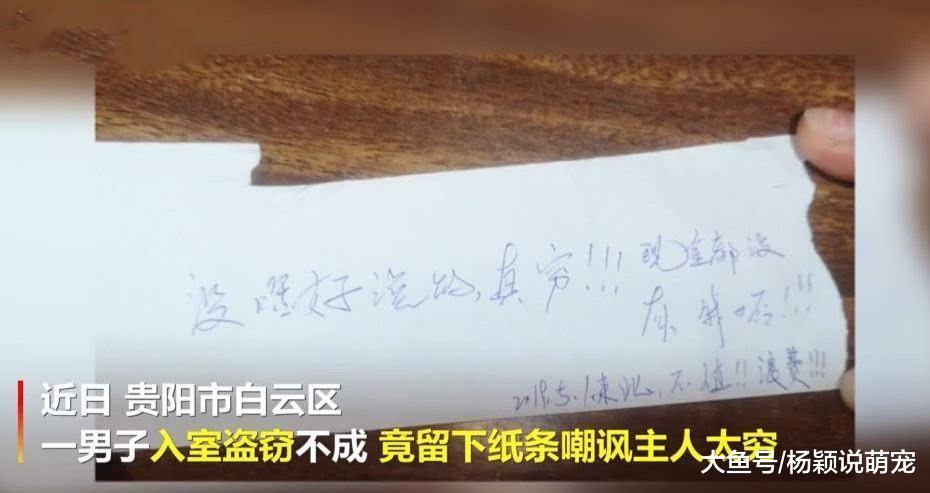 没嘿好说的，真穷!!! 现金都没
有
不值!! 浪费!!!
近日 贵阳市白云区
一男子入室盗窃不成 竟留下纸条嘲讽主人太穷
大鱼号/杨颖说萌宠